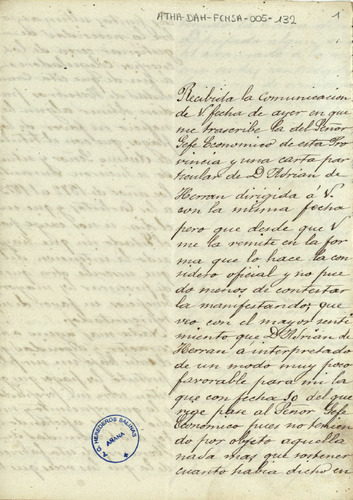 ATHA-DAH-FCNSA-005-132
1
Recibida la Comunicacion
de V. fecha de ayer en que
me trascribe la del Señor
Gefe Economico de esta Pro
vincia y una carta par
ticular de D Adrian de
Herran dirigida á V.
con la misma fecha
pero que desde que V
me la remite en la for
ma que lo hace la con
sidero oficial y no pue
do menos de contestar
la manifestando, que
veo con el mayor senti
miento que D. Adrian de
Herran a interpretado
de un modo muy poco
favorable para mi la
que con fecha 10 del que
rige pasé al Señor Gefe
Economico pues no tenien
do por objeto aquella
nada mas que sostener
cuanto habia dicho en
A.D. HEREDEROS SALINAS
AÑANA